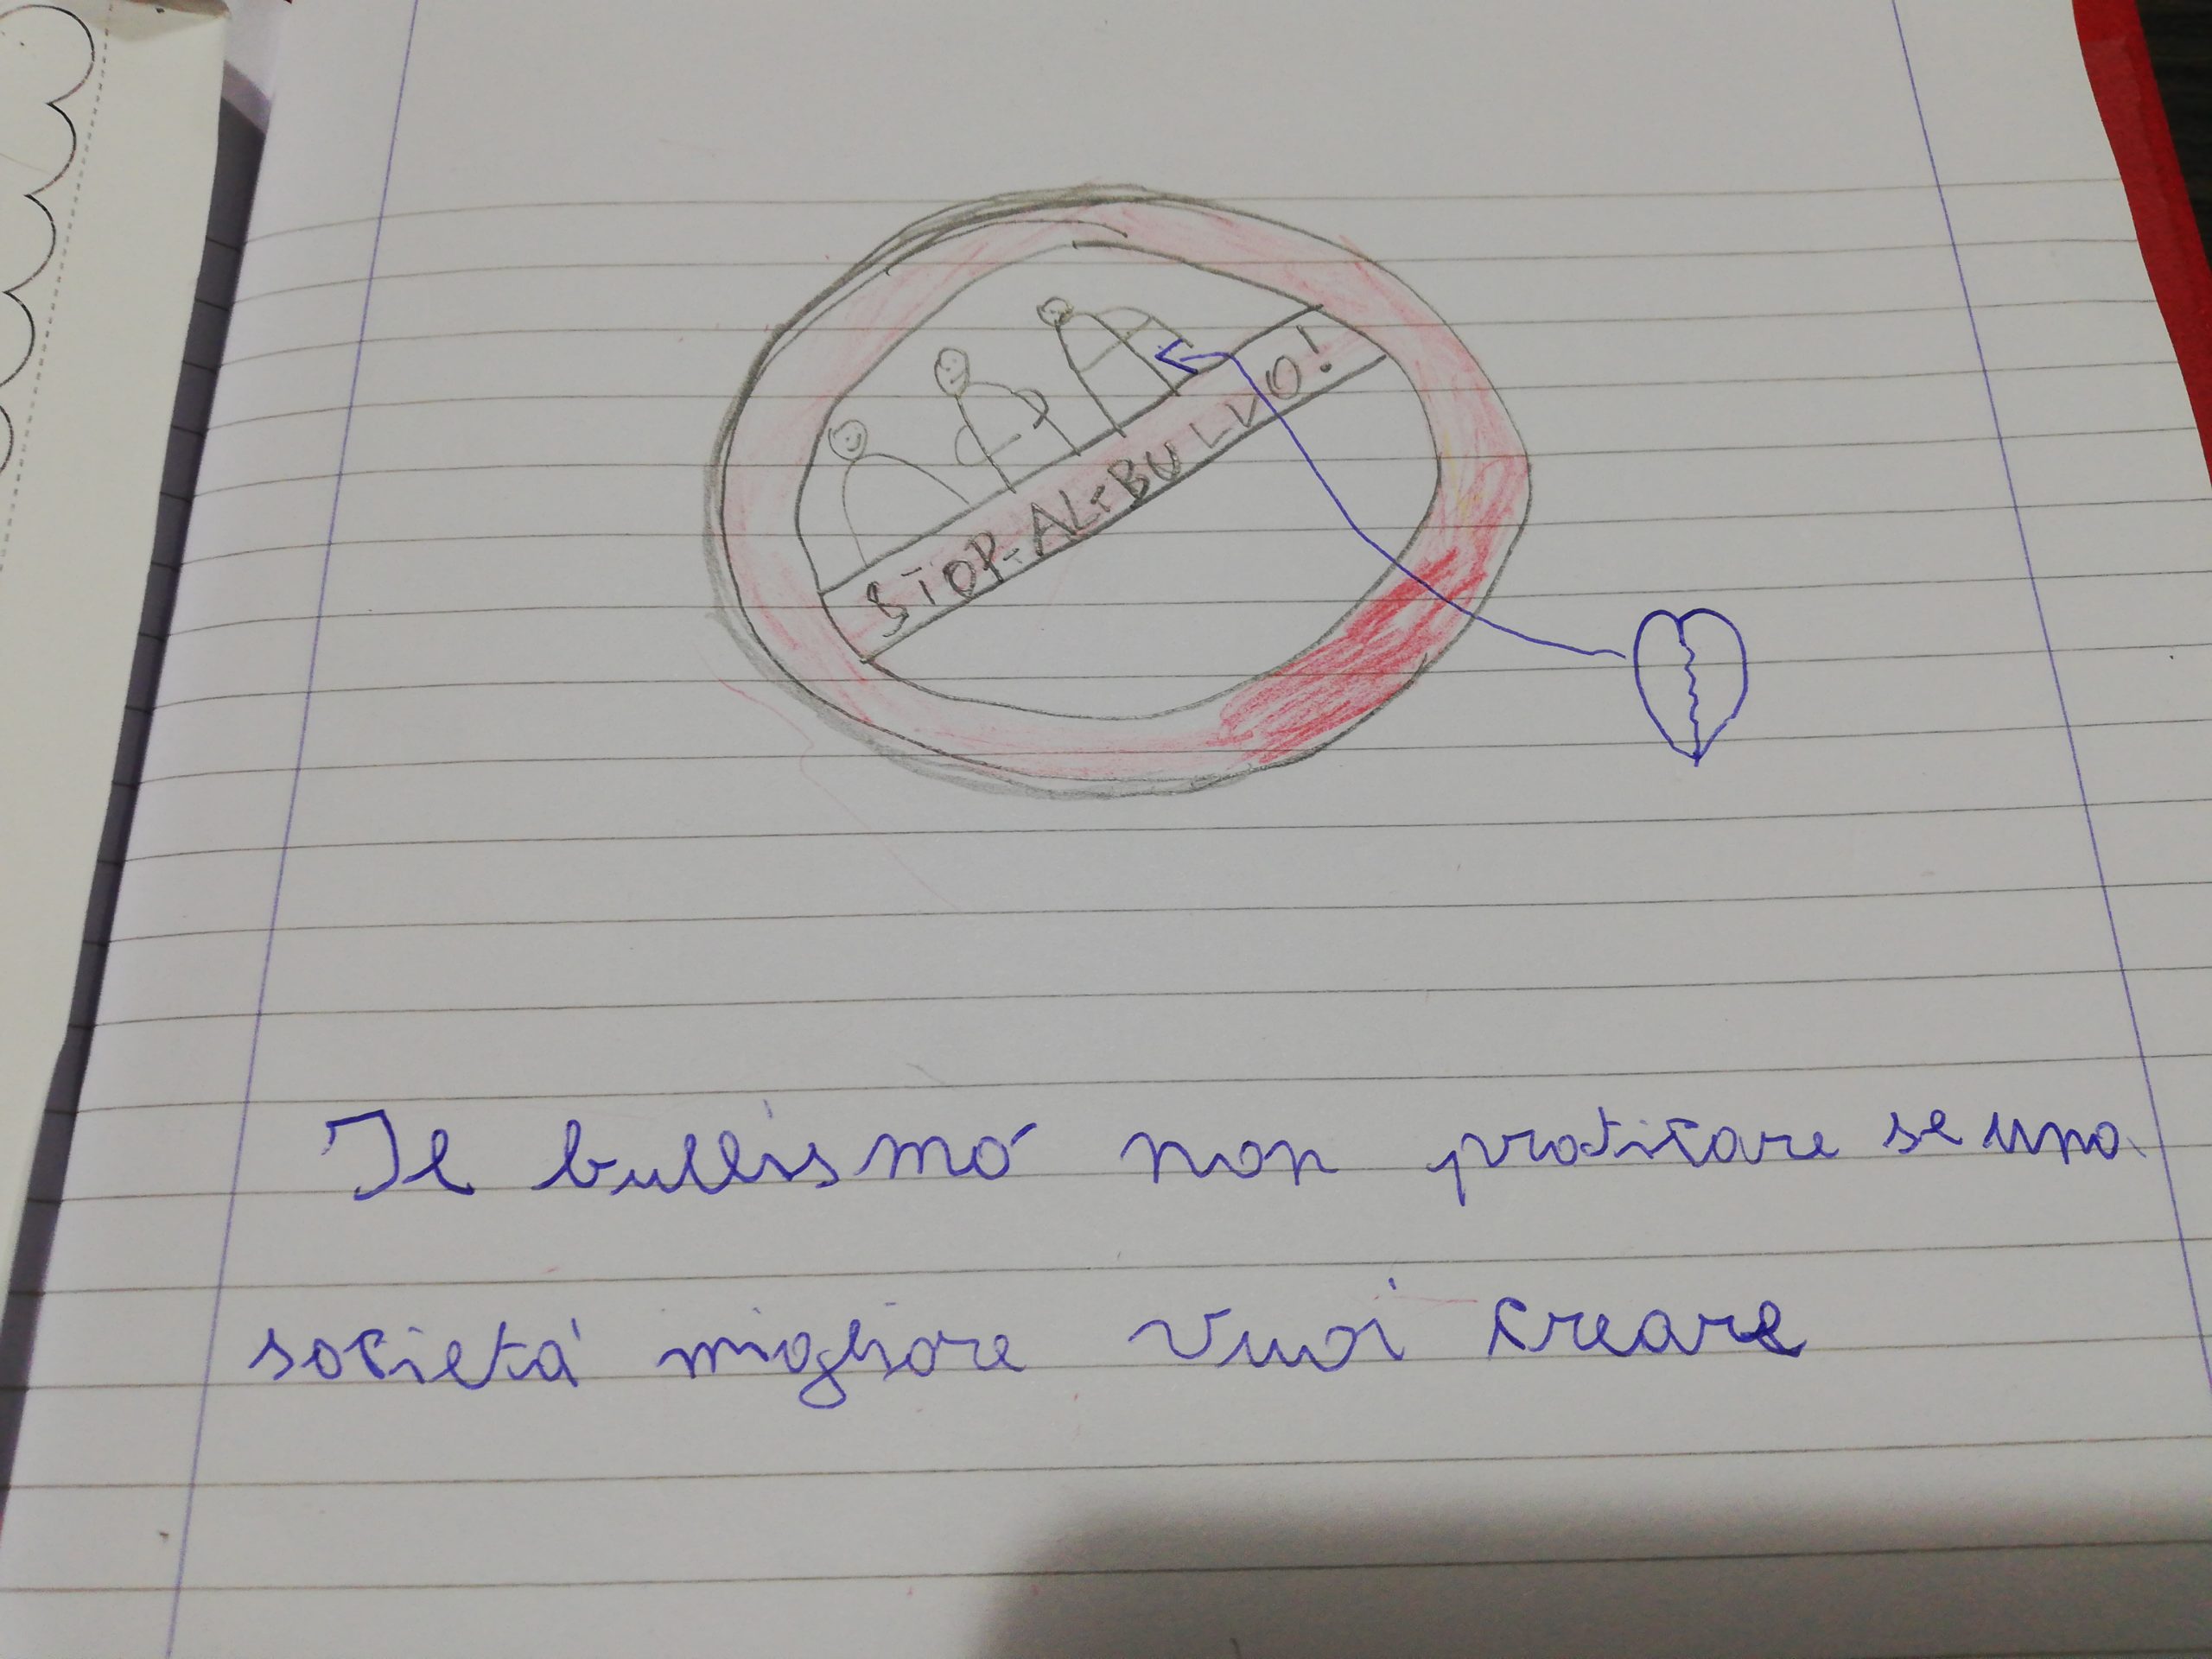 STOP-AL-BULLO!
Il bullismo non praticare se una
società migliore vuoi creare